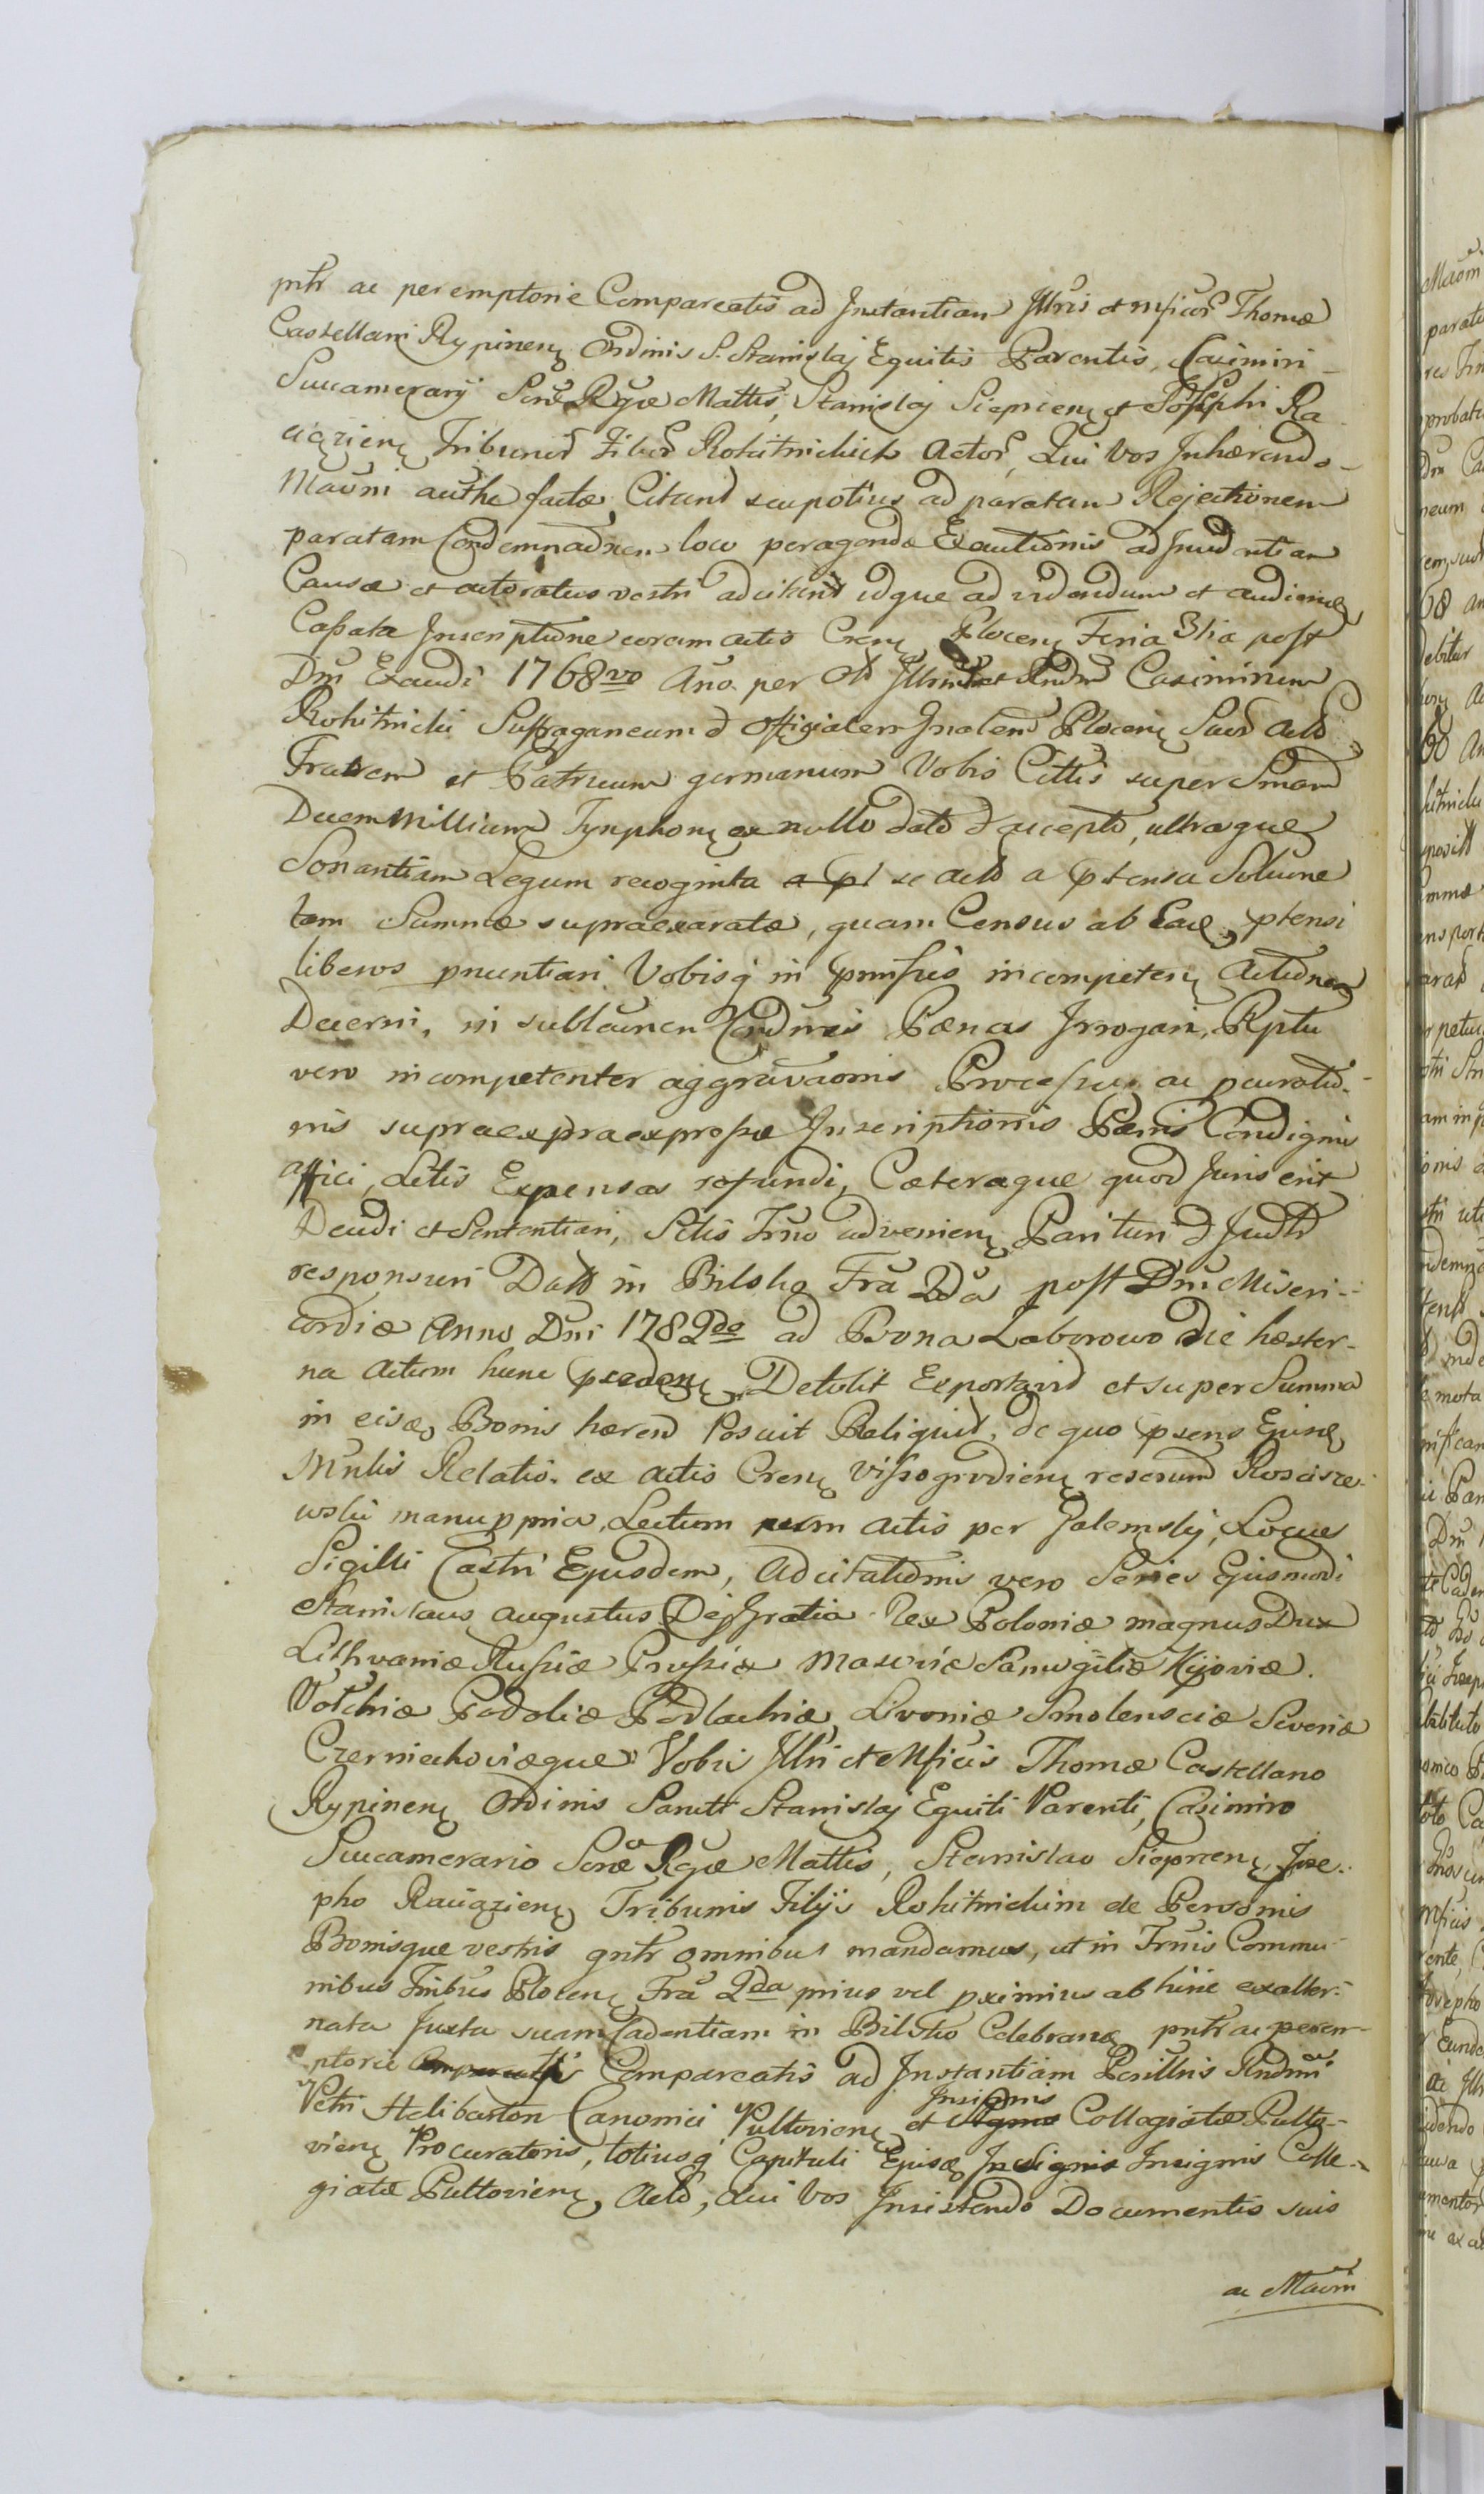 pntr ac peremptorie Compareatis ad Instantiam Illris et Mficor Thomæ
Castellani Rypinen Ordinis S. Stanislaj Equitis Parentis, Casimiri
Succamerarij Sacræ Rgiæ Mattis, Stanislaj Sieprcen et Josephi Ra
ciązien Tribunor Filior Rokitnickich Actor, Qui vos Inhærendo
Maõni authe factæ, Citant seu potius ad paratam Rejectionem
paratam Condemnaõnem loco peragendæ Exautionis ad
Causæ et actoratus vestri adcitant idque ad videndum et audiend
Cassata Inscriptione coram actis Cren Plocen Feria 3tia post
Dm Exaudi 1768vo Ano. per olt Illrm et Rndm Casimirum
Rokitnicki Suffraganeum et Officialem Gnalem Plocen Suor Act
Fratrem et Patruum germanum Vobis Cittis super Smam
Decem Millium Tynphon ex nullo dato et accepto, ultraque
Sonantiam Legum recognita a pt se acto a ptensa Solucione
tam Summæ supraexaratæ, quam Census ab Eade ptensi
liberos pnuntiari Vobisq in pmissis incompeten Actionem
Decerni, in sublaõnen Condmnis Pænas Irrogari, Rptu
vero incompetenter aggravaõnis Processus ac pcuratio-
nis supraexpraexpressæ Inscriptionis Pænis Condignis
affici, Litis Expensas refundi, Cæteraque quod Juris erit
Decidi et Sententiari, Sitis Trno advenien Parituri et Judtr
responsuri Datt in Bilsko Fra 2da post Dm Miseri-
cordiæ Anno Dni 1782do ad Bona Laborowo die hæster-
na Actum hunc pcæden Detulit Exportavit et super Summa
in eisd Bonis hæren Posuit Reliquit, de quo psens Ejusd
Mnlis Relatio. ex actis Cren Vissogrodien rescrind Rosisze
wski manu ppria, Lectum cum actis per Golemski, Locus
Sigilli Castri Ejusdem, Adcitationis vero Series Ejusmodi
Stanislaus Augustus Dej Gratia Rex Poloniæ magnus Dux
Lithvaniæ Russiæ Prussiæ Masoviæ Samogitiæ Kijoviæ.
Volchiæ Podoliæ Podlachiæ, Livoniæ Smolensciæ Severiæ
Czerniechoviæque Vobis Illri et Mficis Thomæ Castellano
Rypinen Ordinis Sancti Stanislaj Equiti Parenti, Casimiro
Succamerario Sacræ Rgiæ Mattis, Stanislao Sieprcen, Jose-
pho Raciązien Tribunis Filijs Rokitnickim de Personis
Bonisque vestris gntr omnibus mandamus, ut in Trnis Commu
nibus Tribus Plocen Fra 2da prius vel pximius ab hinc exalter-
nata Juxta suam Cadentiam in Bilsko Celebran pntr ac perem-
ptorie Compareatis Compareatis ad Instantiam Perillris Rndmi
Petri Halibarton Canonici Pultovien et Insignis Collegiatæ Pulto-
vien Procuratoris, totiusq Capituli Ejusd Insignis Insignis Colle-
giatæ Pultovien, Act, Qui Vos Insistendo Documentis suis
ac Maõni